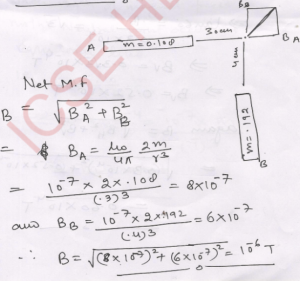 B_B
30cm
B_A
A m=0.108
40cm
m=.192
B
Net M.f
B = √(B_A² + B_B²)
= B_A = μ0/4π 2m/r³
= 10^-7 × 2×.108 / (.3)3 = 8×10^-7
and B_B = 10^-7 × 2×.192 / (.4)3 = 6×10^-7
∴ B = √((8×10^-7)² + (6×10^-7)²) = 10^-6 T
ICSE HE